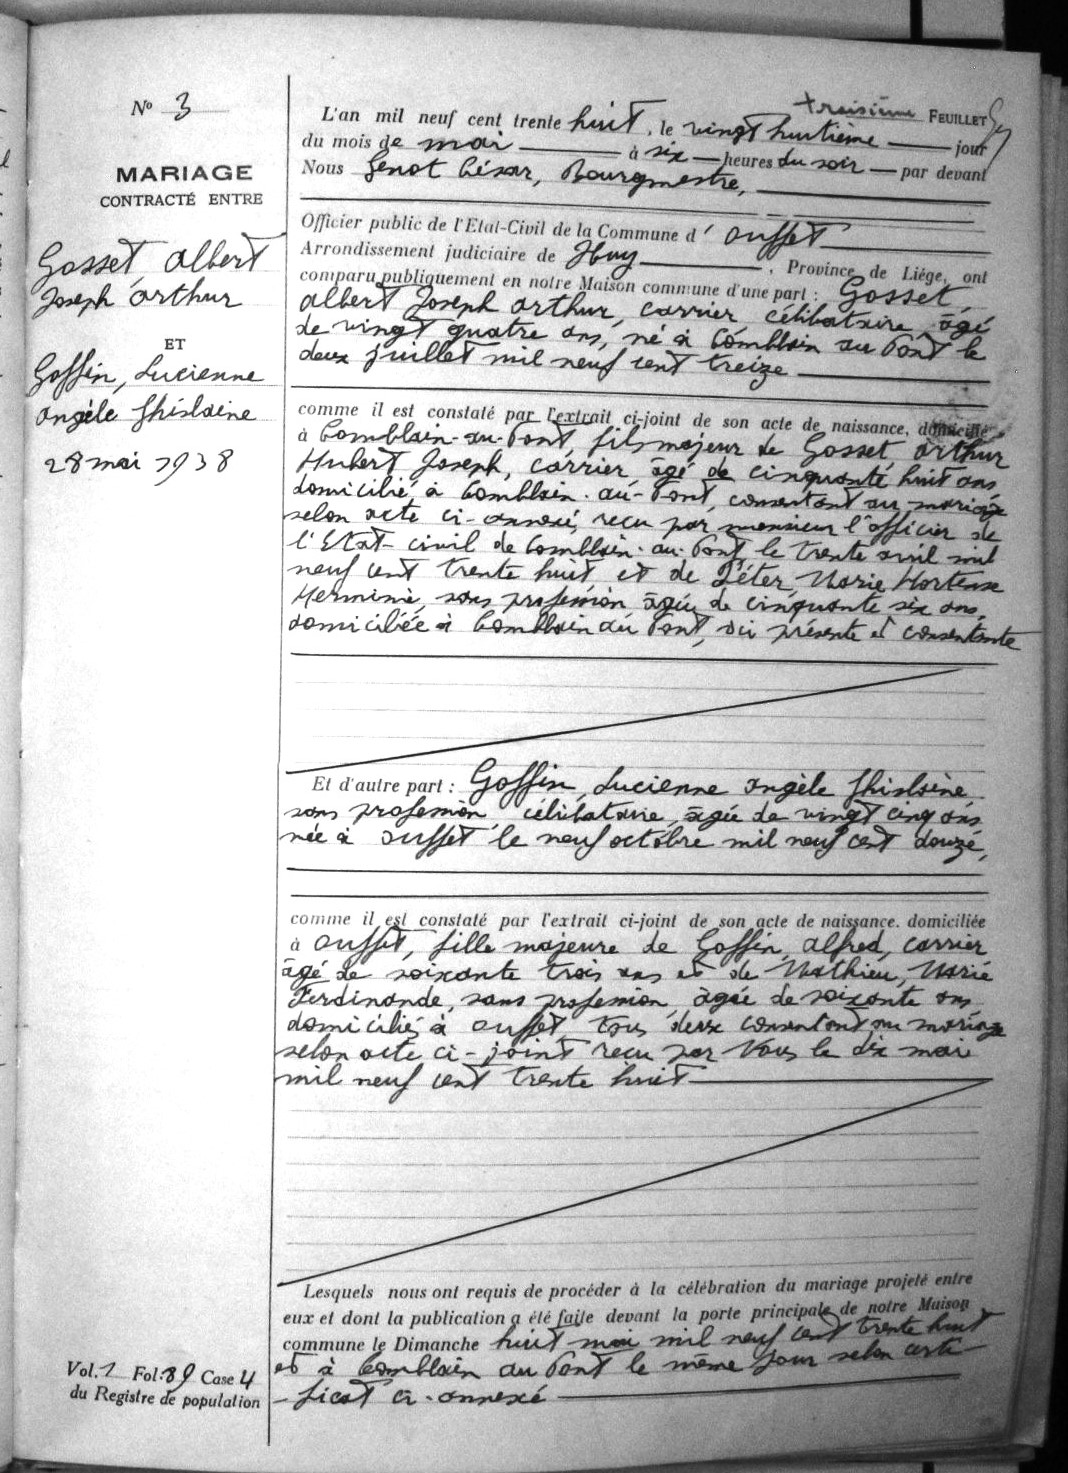 N° 3
MARIAGE
CONTRACTÉ ENTRE
Gosset, Albert
Joseph Arthur
ET
Goffin, Lucienne
Angèle Ghislaine
28 mai 1938
troisième FEUILLET
L'an mil neuf cent trente huit, le vingt huitième jour
du mois de mai à six heures du soir par devant
Nous Genot César, Bourgmestre,
Officier public de l'Etat-Civil de la Commune d' Ouffet
Arrondissement judiciaire de Huy, Province de Liége, ont
comparu publiquement en notre Maison commune d'une part : Gosset,
Albert Joseph Arthur, carrier célibataire, âgé
de vingt quatre ans, né à Comblain au Pont le
deux juillet mil neuf cent treize
comme il est constaté par l'extrait ci-joint de son acte de naissance, domicilié
à Comblain-au-Pont, fils majeur de Gosset Arthur
Hubert Joseph, carrier, âgé de cinquante huit ans
domicilié à Comblain-au-Pont, consentant au mariage
selon acte ci-annexé, reçu par monsieur l'officier de
l'Etat-civil de Comblain-au-Pont, le trente avril mil
neuf cent trente huit, et de Piéter, Marie Hortense
Herminie, sans profession, âgée de cinquante six ans,
domiciliée à Comblain au Pont, ici présente et consentante
Et d'autre part : Goffin, Lucienne Angèle Ghislaine
sans profession, célibataire, âgée de vingt cinq ans
née à Ouffet le neuf octobre mil neuf cent douze,
comme il est constaté par l'extrait ci-joint de son acte de naissance, domiciliée
à Ouffet, fille majeure de Goffin, Alfred, carrier
âgé de soixante trois ans et de Mathieu, Marie
Ferdinande, sans profession, âgée de soixante ans
domiciliés à Ouffet, tous deux consentant au mariage
selon acte ci-joint reçu par Nous le dix mai
mil neuf cent trente huit
Lesquels nous ont requis de procéder à la célébration du mariage projeté entre
eux et dont la publication a été faite devant la porte principale de notre Maison
commune le Dimanche huit mai mil neuf cent trente huit
et à Comblain au Pont le même jour selon certi-
-ficat ci-annexé
Vol. 1 Fol. 89 Case 4
du Registre de population